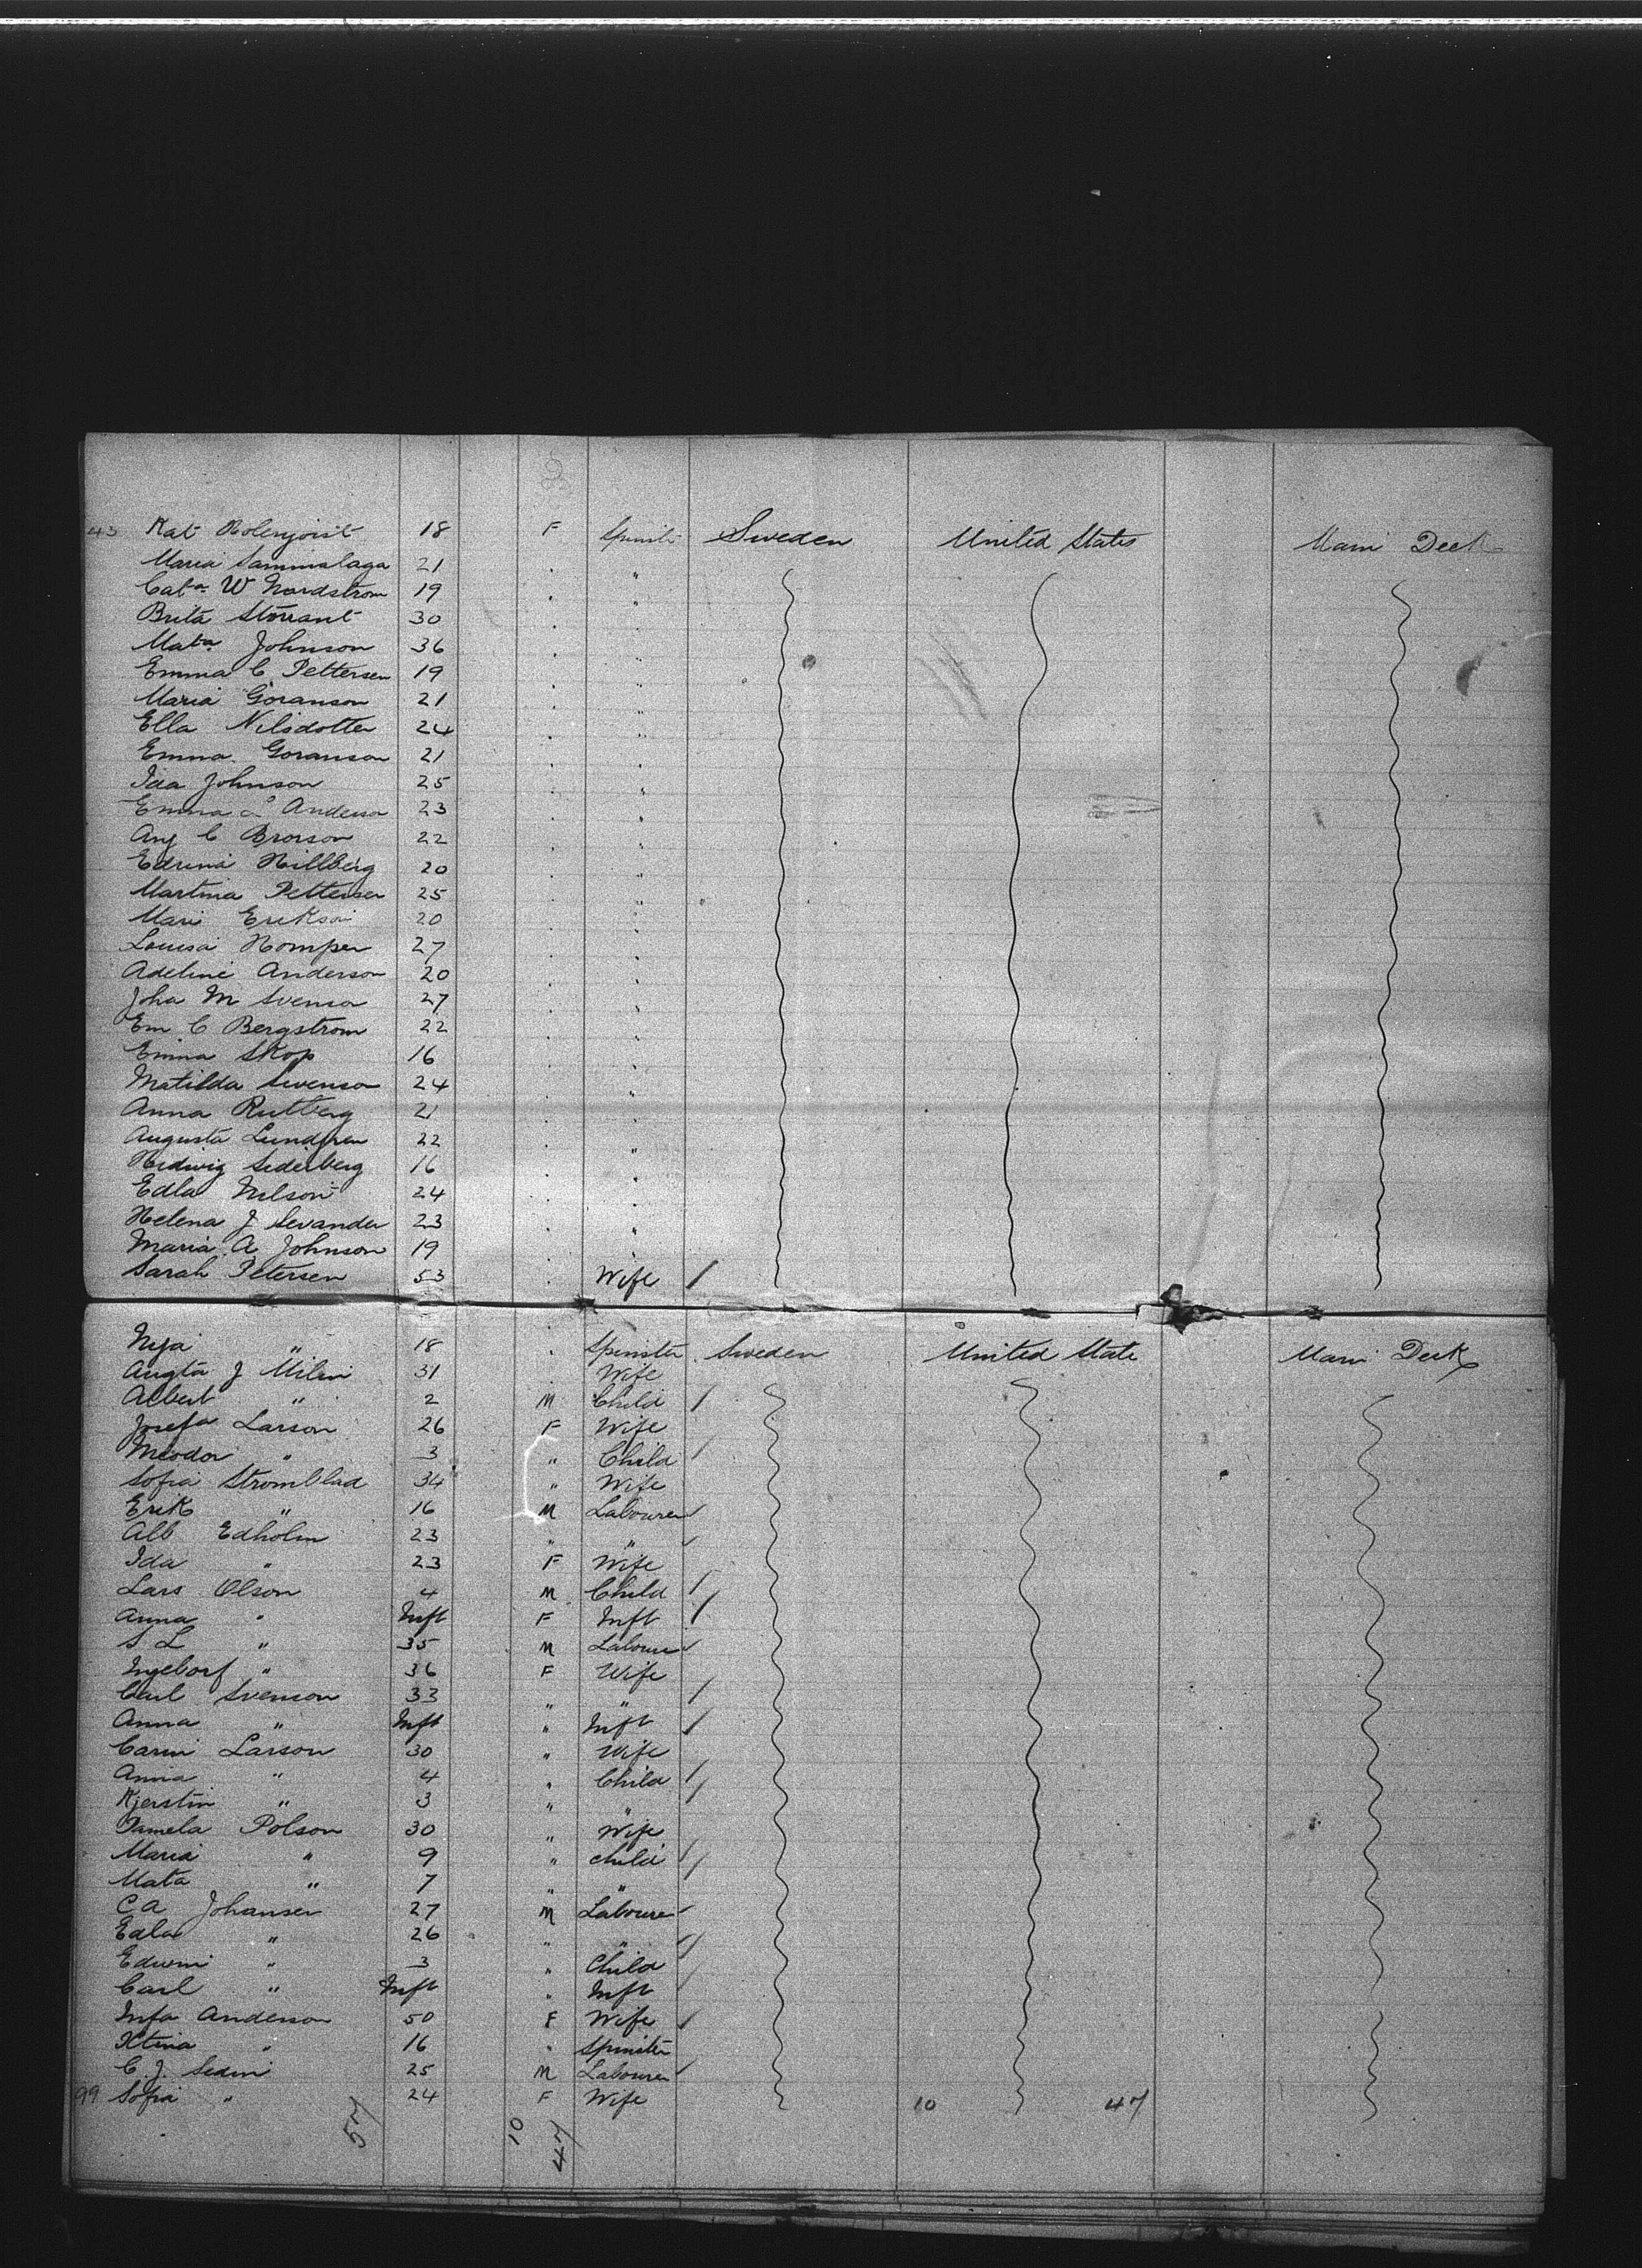 43 Kat Holmqvist 18 F Spinstr Sweden United States Main Deck
Maria Sammislaga 21 . "
Cata W Nordstrom 19 . "
Brita Storrant 30 . "
Mata Johnson 36 . "
Emma C Pettersen 19 . "
Maria Goranson 21 . "
Ella Nilsdotter 24 . "
Emma Goranson 21 . "
Ida Johnson 25 . "
Emma Anderson 23 . "
Aug C Brorson 22 . "
Edrina Hillberg 20 . "
Martina Pettersen 25 . "
Mari Erikson 20 . "
Louisa Homper 27 . "
Adeline Anderson 20 . "
Joha M Svenson 27 . "
Em C Bergstrom 22 . "
Emma Skop 16 . "
Matilda Svenson 24 . "
Anna Rutberg 21 . "
Augusta Lundgren 22 . "
Hedwig Sederberg 16 . "
Edla Nilson 24 . "
Helena J Sevander 23 . "
Maria A Johnson 19 . "
Sarah Petersen 53 . Wife /
" 18 . Spinster Sweden United State Main Deck
Augta J Milin 31 . Wife
Albert " 2 M Child /
Josefa Larson 26 F Wife
" 3 " Child /
Sofia Stromblad 34 " Wife
Erik " 16 M Labourer /
Alb Edholm 23 " " /
Ida " 23 F Wife
Lars Olson 4 M Child /
Anna " Inft F Inft /
S L " 35 M Labourer /
Ingeborf " 36 F Wife
Carl Svenson 33 " " /
Anna " Inft " Inft /
Carin Larson 30 " Wife
Anna " 4 " Child /
Kjerstin " 3 " " /
Pamela Polson 30 " Wife
Maria " 9 " child /
Mata " 7 " " /
C A Johansen 27 M Labourer /
Edla " 26 " " /
Edwin " 3 " Child /
Carl " Inft " Inft /
Inga Anderson 50 F Wife /
Xtina " 16 " Spinster
C. J. Sedin 25 M Labourer /
99 Sofia " 24 F Wife 10 47
57 10 47